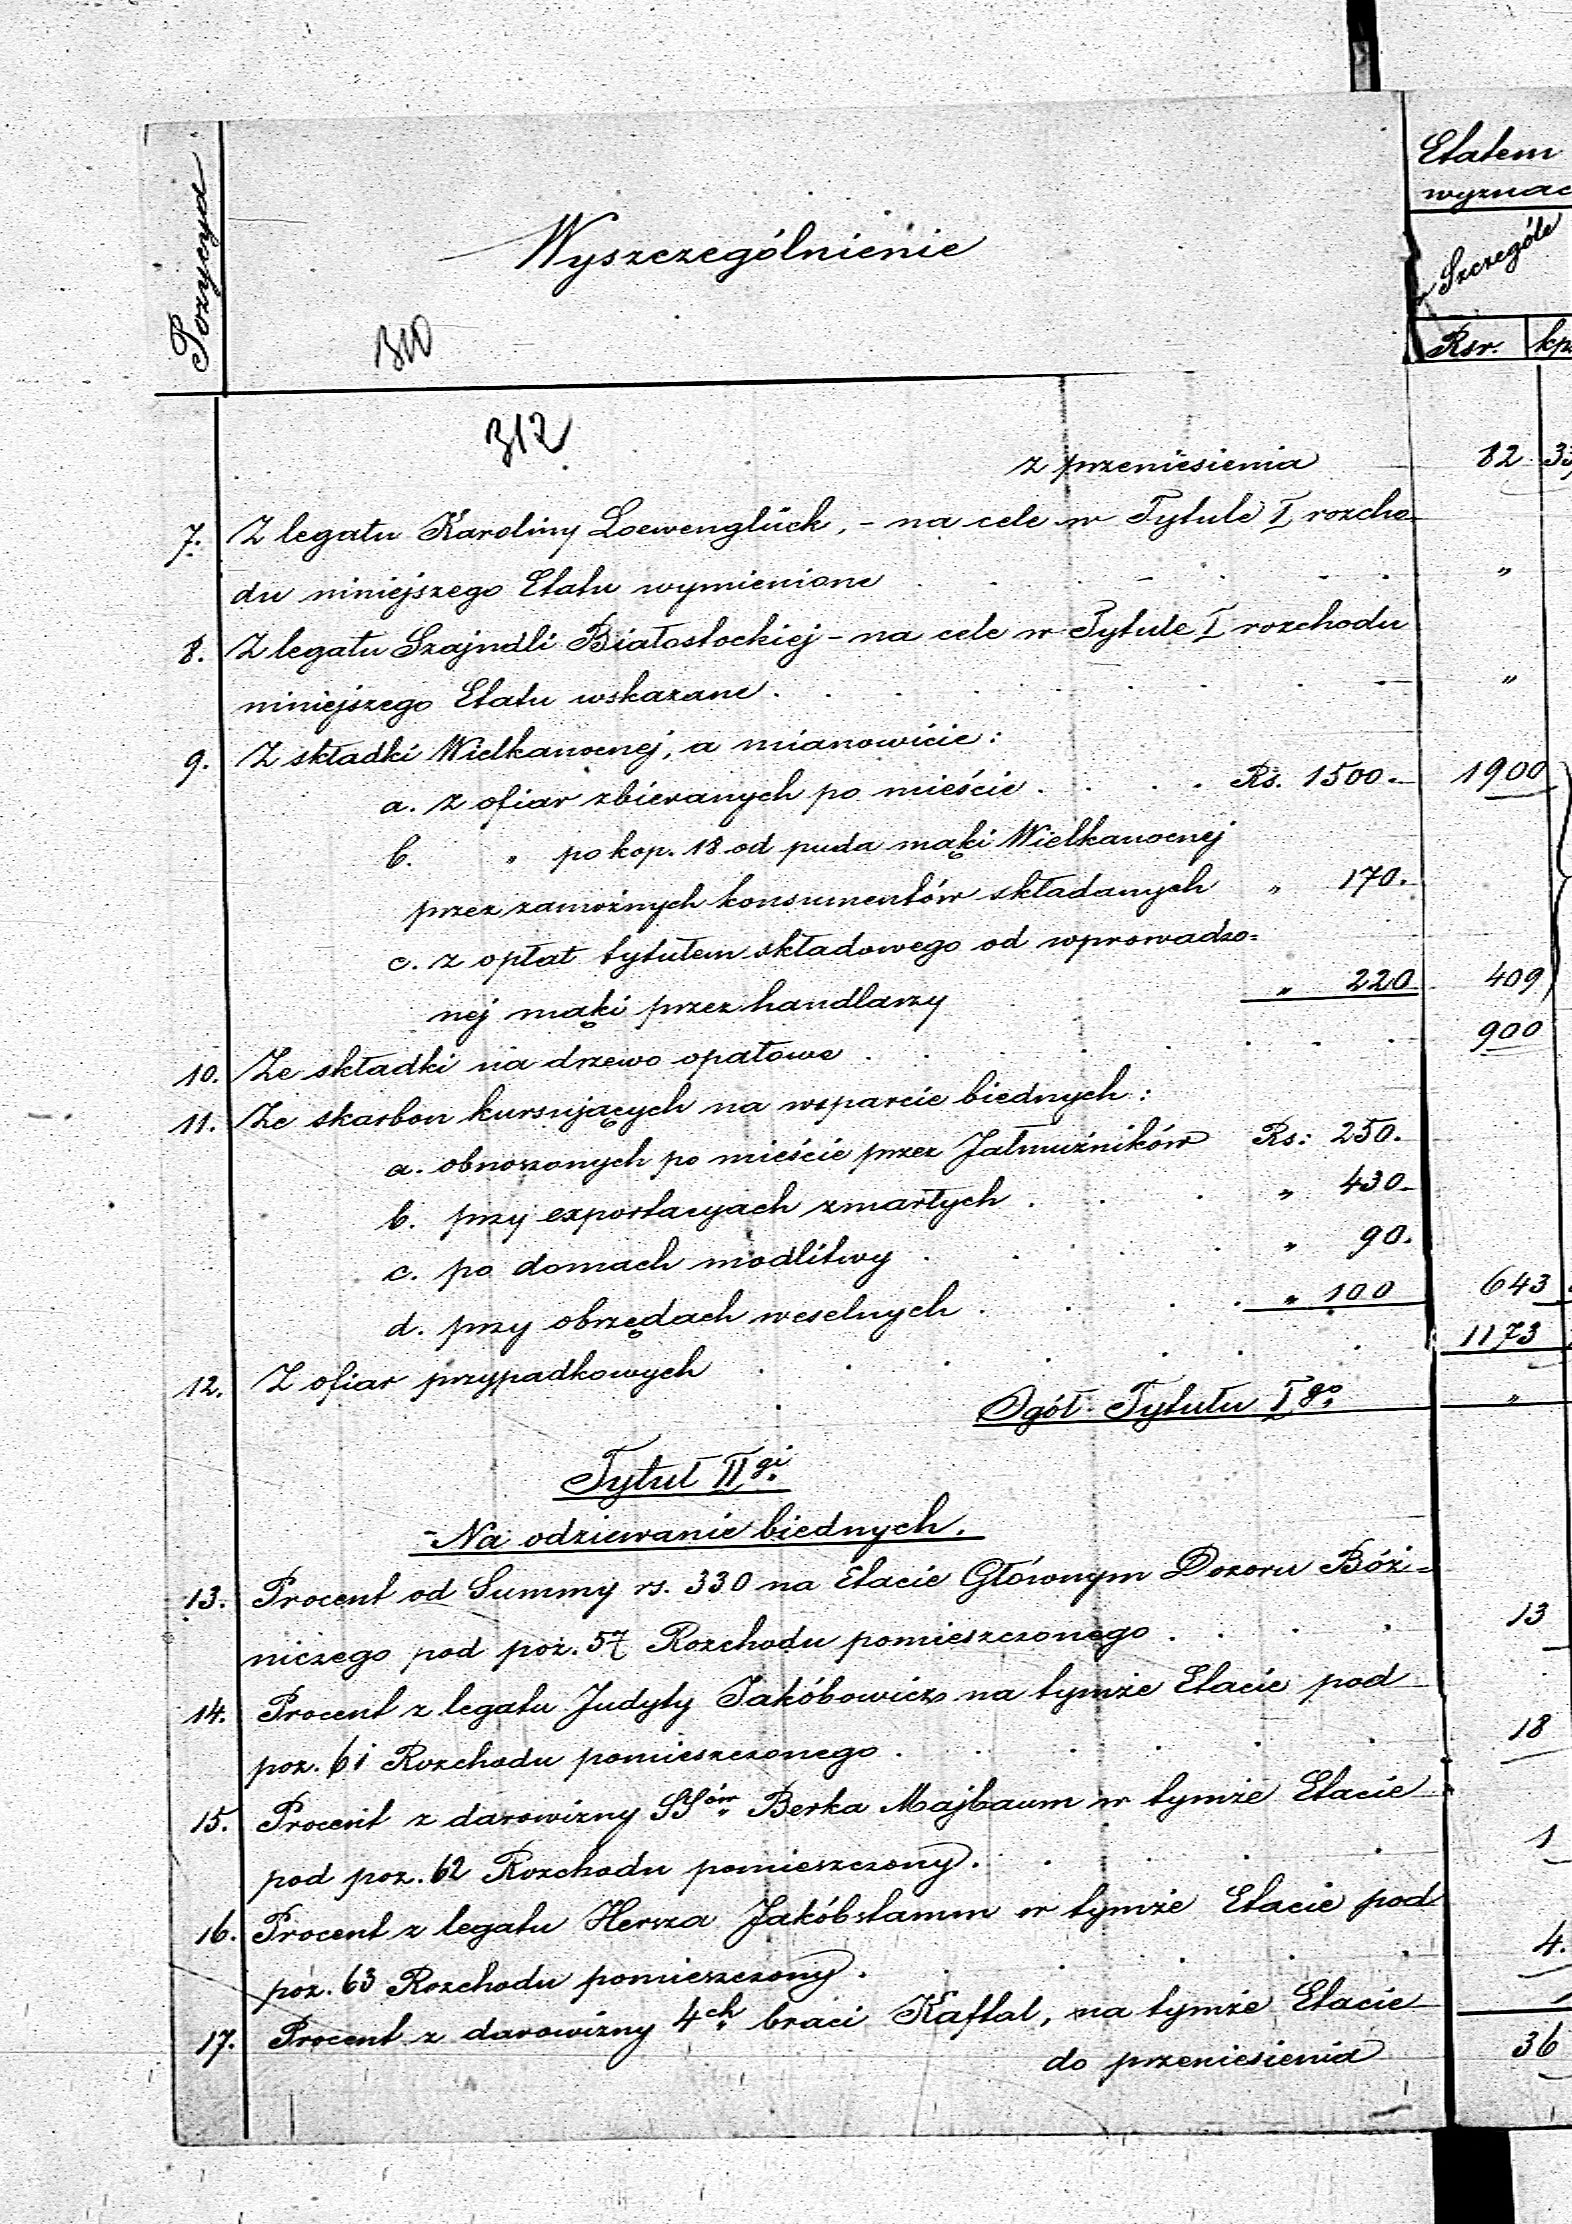 Etatem
wyznac
Pozycya
Wyszczególnienie
w Szczególe
310
Rsr. kp.
312
z przeniesienia 82 33
7. Z legatu Karoliny Loewenglück, - na cele w Tytule I rozcho-
du niniejszego Etatu wymienione . . . . . "
8. Z legatu Szajndli Białostockiej - na cele w Tytule I rozchodu
niniejszego Etatu wskazane . . . . . "
9. Z składki Wielkanocnej, a mianowicie:
a. z ofiar zbieranych po mieście . . . Rs. 1500.- 1900
b. " po kop. 18 od puda mąki Wielkanocnej
przez zamożnych konsumentów składanych " 170.
c. z opłat tytułem składowego od wprowadzo=
nej mąki przez handlarzy " 220 409
10. Ze składki na drzewo opałowe . . . . . 900
11. Ze skarbon kursujących na wsparcie biednych:
a. obnoszonych po mieście przez Jałmużników Rs: 250.
b. przy exportacyach zmarłych . . . " 430-
c. po domach modlitwy . . . . " 90.
d. przy obrzędach weselnych . . . . " 100 643
12. Z ofiar przypadkowych . . . . . 1173
Ogół Tytułu Igo "
Tytuł IIgi
Na odziewanie biednych.
13. Procent od Summy rs. 330 na Etacie Głównym Dozoru Bóż=
niczego pod poz. 57 Rozchodu pomieszczonego . . . . 13
14. Procent z legatu Judyty Jakóbowicz na tymże Etacie pod
poz. 61 Rozchodu pomieszczonego . . . . . 18
15. Procent z darowizny SSów Berka Majbaum w tymże Etacie
pod poz. 62 Rozchodu pomieszczony . . . . 1
16. Procent z legatu Hersza Jakóbstamm w tymże Etacie pod
poz. 63 Rozchodu pomieszczony . . . . . 4.
17. Procent z darowizny 4ch braci Kaftal, na tymże Etacie
do przeniesienia 36